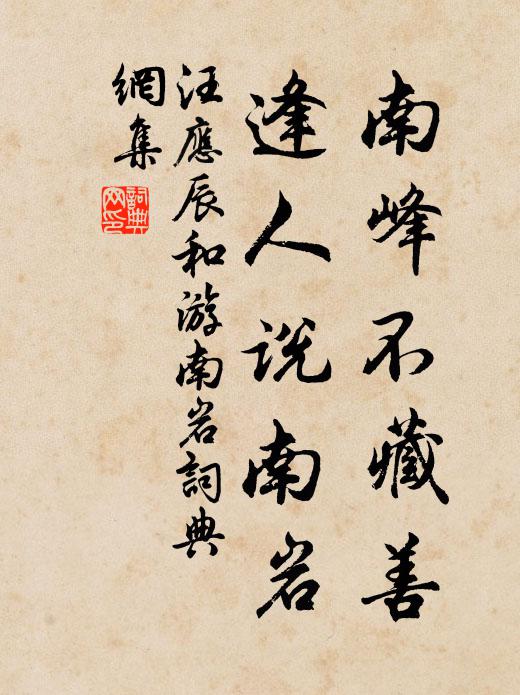 南峰不藏善
逢人説南岩
汪應辰和游南岩詞典
網集
詞典網印